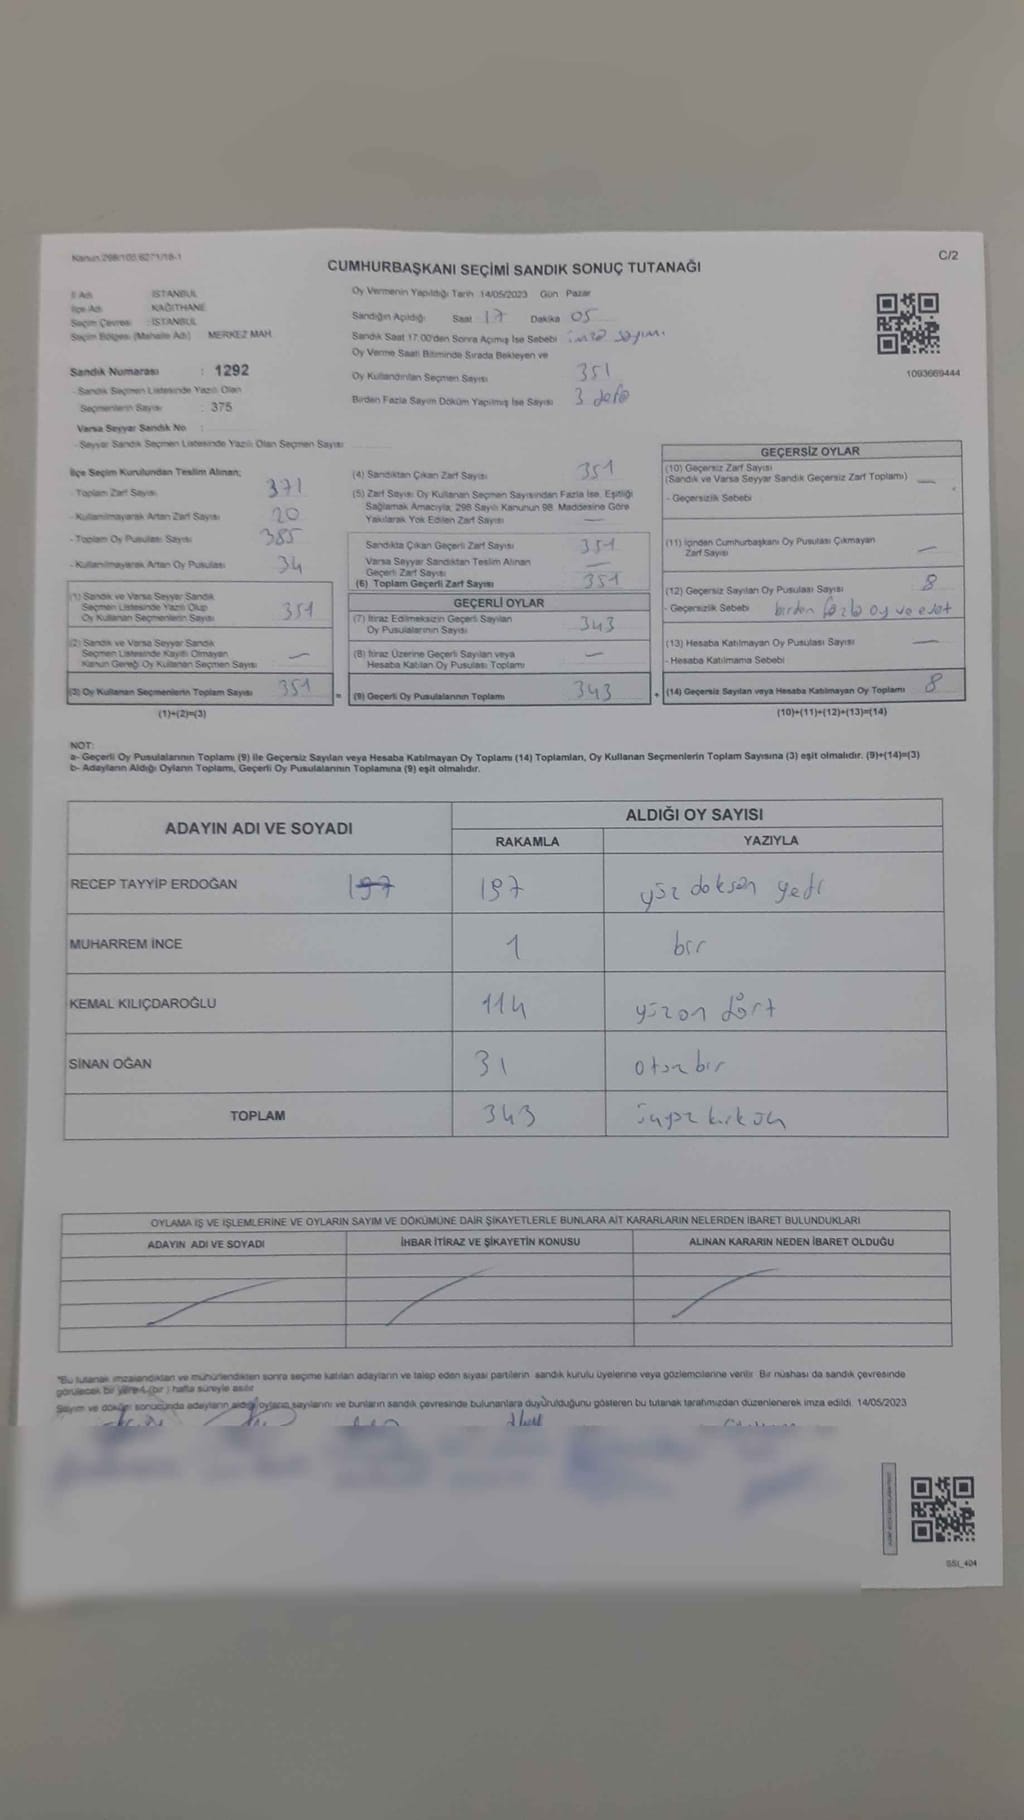 Kanun:298/105,6271/18-1
C/2
CUMHURBAŞKANI SEÇİMİ SANDIK SONUÇ TUTANAĞI
İl Adı : İSTANBUL
İlçe Adı : KAĞITHANE
Seçim Çevresi : İSTANBUL
Seçim Bölgesi (Mahalle Adı) MERKEZ MAH.
Sandık Numarası : 1292
- Sandık Seçmen Listesinde Yazılı Olan
Seçmenlerin Sayısı : 375
Varsa Seyyar Sandık No :
- Seyyar Sandık Seçmen Listesinde Yazılı Olan Seçmen Sayısı:
Oy Vermenin Yapıldığı Tarih 14/05/2023 Gün Pazar
Sandığın Açıldığı Saat 17 Dakika 05
Sandık Saat 17:00'den Sonra Açılmış İse Sebebi imza sayımı
Oy Verme Saati Bitiminde Sırada Bekleyen ve
Oy Kullandırılan Seçmen Sayısı 351
Birden Fazla Sayım Döküm Yapılmış İse Sayısı 3 defa
1093669444
İlçe Seçim Kurulundan Teslim Alınan;
- Toplam Zarf Sayısı 371
- Kullanılmayarak Artan Zarf Sayısı 20
- Toplam Oy Pusulası Sayısı 385
- Kullanılmayarak Artan Oy Pusulası 34
(1) Sandık ve Varsa Seyyar Sandık
Seçmen Listesinde Yazılı Olup
Oy Kullanan Seçmenlerin Sayısı 351
(2) Sandık ve Varsa Seyyar Sandık
Seçmen Listesinde Kayıtlı Olmayan
Kanun Gereği Oy Kullanan Seçmen Sayısı —
(3) Oy Kullanan Seçmenlerin Toplam Sayısı 351
(1)+(2)=(3)
(4) Sandıktan Çıkan Zarf Sayısı 351
(5) Zarf Sayısı Oy Kullanan Seçmen Sayısından Fazla İse, Eşitliği
Sağlamak Amacıyla, 298 Sayılı Kanunun 98. Maddesine Göre
Yakılarak Yok Edilen Zarf Sayısı —
Sandıkta Çıkan Geçerli Zarf Sayısı 351
Varsa Seyyar Sandıktan Teslim Alınan
Geçerli Zarf Sayısı —
(6) Toplam Geçerli Zarf Sayısı 351
GEÇERLİ OYLAR
(7) İtiraz Edilmeksizin Geçerli Sayılan
Oy Pusulalarının Sayısı 343
(8) İtiraz Üzerine Geçerli Sayılan veya
Hesaba Katılan Oy Pusulası Toplamı —
= (9) Geçerli Oy Pusulalarının Toplamı 343
GEÇERSİZ OYLAR
(10) Geçersiz Zarf Sayısı
(Sandık ve Varsa Seyyar Sandık Geçersiz Zarf Toplamı) —
- Geçersizlik Sebebi
(11) İçinden Cumhurbaşkanı Oy Pusulası Çıkmayan
Zarf Sayısı —
(12) Geçersiz Sayılan Oy Pusulası Sayısı 8
- Geçersizlik Sebebi birden fazla oy ve evet
(13) Hesaba Katılmayan Oy Pusulası Sayısı —
- Hesaba Katılmama Sebebi
+ (14) Geçersiz Sayılan veya Hesaba Katılmayan Oy Toplamı 8
(10)+(11)+(12)+(13)=(14)
NOT:
a- Geçerli Oy Pusulalarının Toplamı (9) ile Geçersiz Sayılan veya Hesaba Katılmayan Oy Toplamı (14) Toplamları, Oy Kullanan Seçmenlerin Toplam Sayısına (3) eşit olmalıdır. (9)+(14)=(3)
b- Adayların Aldığı Oyların Toplamı, Geçerli Oy Pusulalarının Toplamına (9) eşit olmalıdır.
ADAYIN ADI VE SOYADI
ALDIĞI OY SAYISI
RAKAMLA YAZIYLA
RECEP TAYYİP ERDOĞAN 197 197 yüz doksan yedi
MUHARREM İNCE 1 bir
KEMAL KILIÇDAROĞLU 114 yüzon dört
SİNAN OĞAN 31 otuzbir
TOPLAM 343 üçyüz kırk üç
OYLAMA İŞ VE İŞLEMLERİNE VE OYLARIN SAYIM VE DÖKÜMÜNE DAİR ŞİKAYETLERLE BUNLARA AİT KARARLARIN NELERDEN İBARET BULUNDUKLARI
ADAYIN ADI VE SOYADI İHBAR İTİRAZ VE ŞİKAYETİN KONUSU ALINAN KARARIN NEDEN İBARET OLDUĞU
*Bu tutanak imzalandıktan ve mühürlendikten sonra seçime katılan adayların ve talep eden siyasi partilerin sandık kurulu üyelerine veya gözlemcilerine verilir. Bir nüshası da sandık çevresinde
görülecek bir yere 1 (bir) hafta süreyle asılır.
Sayım ve döküm sonucunda adayların aldığı oyların sayılarını ve bunların sandık çevresinde bulunanlara duyurulduğunu gösteren bu tutanak tarafımızdan düzenlenerek imza edildi. 14/05/2023
SSI_404